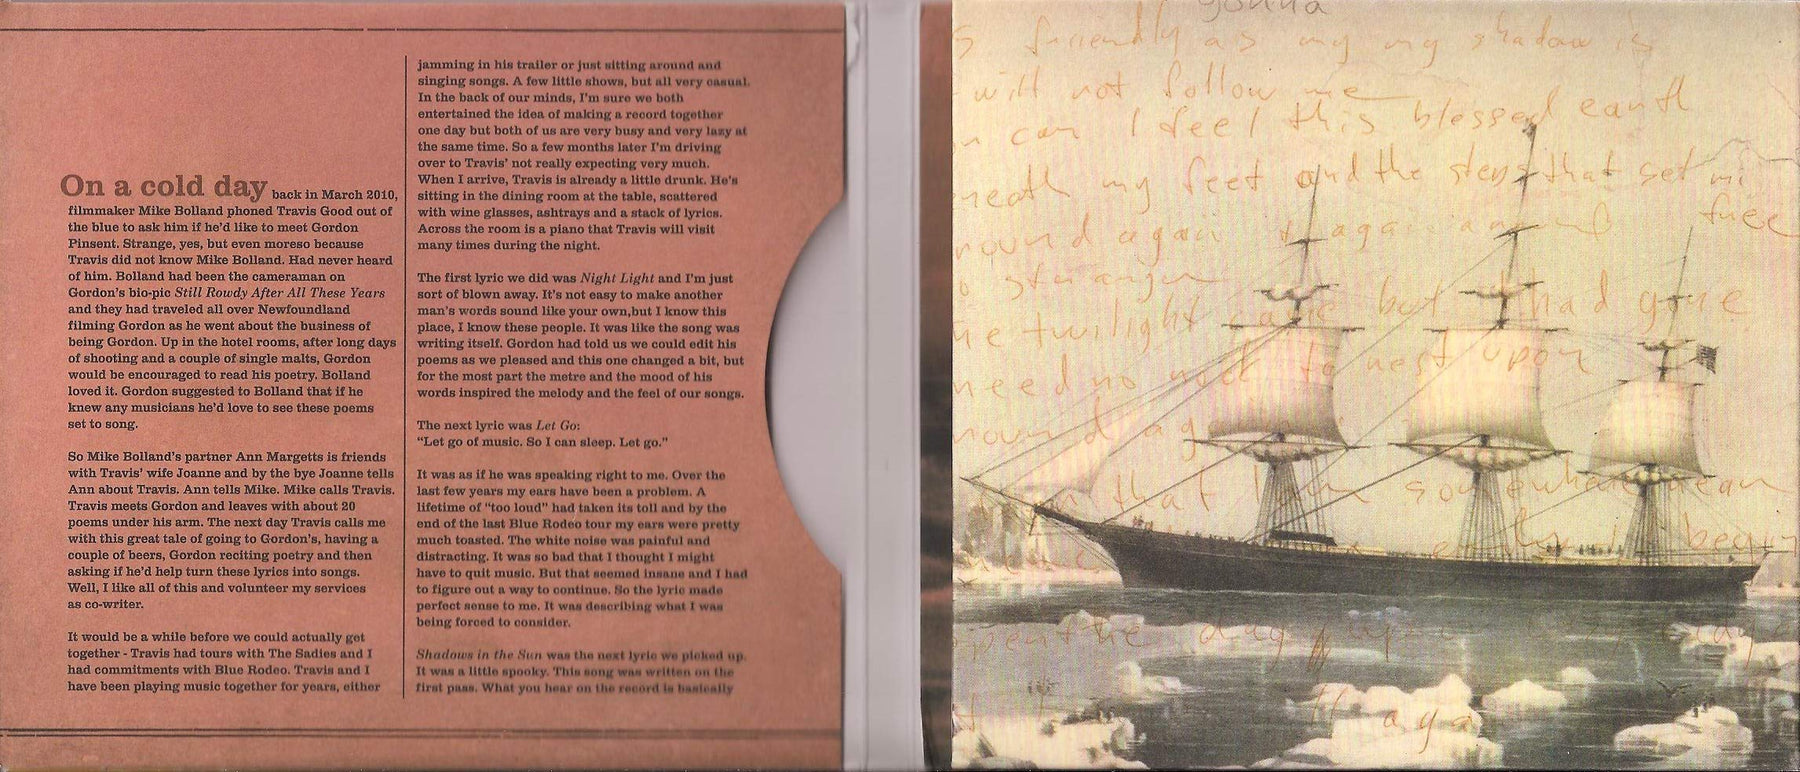 On a cold day back in March 2010,
filmmaker Mike Bolland phoned Travis Good out of
the blue to ask him if he'd like to meet Gordon
Pinsent. Strange, yes, but even moreso because
Travis did not know Mike Bolland. Had never heard
of him. Bolland had been the cameraman on
Gordon's bio-pic Still Rowdy After All These Years
and they had traveled all over Newfoundland
filming Gordon as he went about the business of
being Gordon. Up in the hotel rooms, after long days
of shooting and a couple of single malts, Gordon
would be encouraged to read his poetry. Bolland
loved it. Gordon suggested to Bolland that if he
knew any musicians he'd love to see these poems
set to song.
So Mike Bolland's partner Ann Margetts is friends
with Travis' wife Joanne and by the bye Joanne tells
Ann about Travis. Ann tells Mike. Mike calls Travis.
Travis meets Gordon and leaves with about 20
poems under his arm. The next day Travis calls me
with this great tale of going to Gordon's, having a
couple of beers, Gordon reciting poetry and then
asking if he'd help turn these lyrics into songs.
Well, I like all of this and volunteer my services
as co-writer.
It would be a while before we could actually get
together - Travis had tours with The Sadies and I
had commitments with Blue Rodeo. Travis and I
have been playing music together for years, either
jamming in his trailer or just sitting around and
singing songs. A few little shows, but all very casual.
In the back of our minds, I'm sure we both
entertained the idea of making a record together
one day but both of us are very busy and very lazy at
the same time. So a few months later I'm driving
over to Travis' not really expecting very much.
When I arrive, Travis is already a little drunk. He's
sitting in the dining room at the table, scattered
with wine glasses, ashtrays and a stack of lyrics.
Across the room is a piano that Travis will visit
many times during the night.
The first lyric we did was Night Light and I'm just
sort of blown away. It's not easy to make another
man's words sound like your own,but I know this
place, I know these people. It was like the song was
writing itself. Gordon had told us we could edit his
poems as we pleased and this one changed a bit, but
for the most part the metre and the mood of his
words inspired the melody and the feel of our songs.
The next lyric was Let Go:
"Let go of music. So I can sleep. Let go."
It was as if he was speaking right to me. Over the
last few years my ears have been a problem. A
lifetime of "too loud" had taken its toll and by the
end of the last Blue Rodeo tour my ears were pretty
much toasted. The white noise was painful and
distracting. It was so bad that I thought I might
have to quit music. But that seemed insane and I had
to figure out a way to continue. So the lyric made
perfect sense to me. It was describing what I was
being forced to consider.
Shadows in the Sun was the next lyric we picked up.
It was a little spooky. This song was written on the
first pass. What you hear on the record is basically
gonna
friendly as my my shadow is
will not follow me
can I feel this blessed earth
my feet and the steps that set me
free
round again
stranger
twilight came but I had gone
need no rock to rest upon
round ag
that I am somewhere near
begin
the day
aga